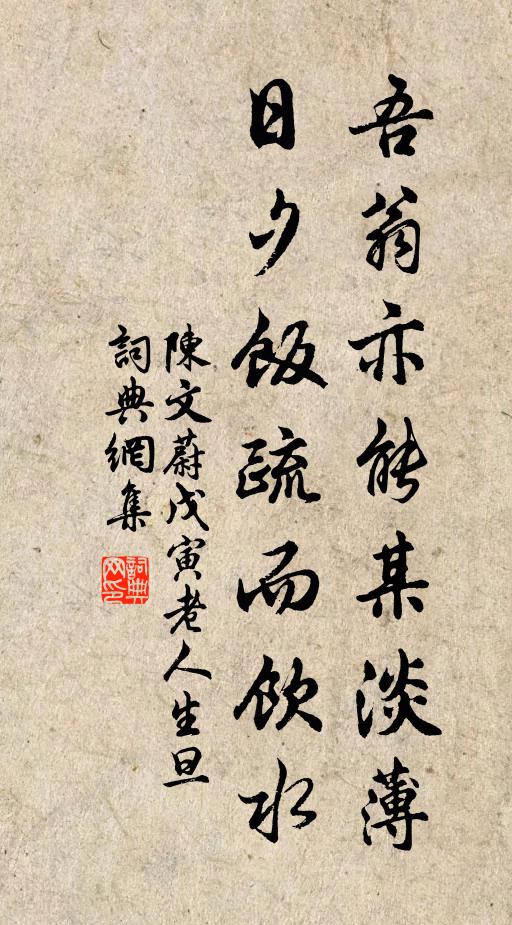 吾翁亦能某淡薄
日夕飯疏而飲水
陳文蔚戊寅老人生旦
詞典網集
詞典網印